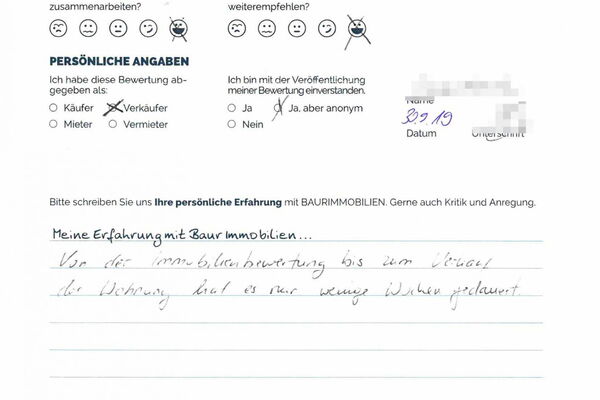 zusammenarbeiten?
weiterempfehlen?
PERSÖNLICHE ANGABEN
Ich habe diese Bewertung ab-
gegeben als:
Käufer Verkäufer
Mieter Vermieter
Ich bin mit der Veröffentlichung
meiner Bewertung einverstanden.
Ja Ja, aber anonym
Nein
Name
30.9.19
Datum Unterschrift
Bitte schreiben Sie uns Ihre persönliche Erfahrung mit BAURIMMOBILIEN. Gerne auch Kritik und Anregung.
Meine Erfahrung mit Baur Immobilien...
Von der Immobilienbewertung bis zum Verkauf
der Wohnung hat es nur wenige Wochen gedauert.